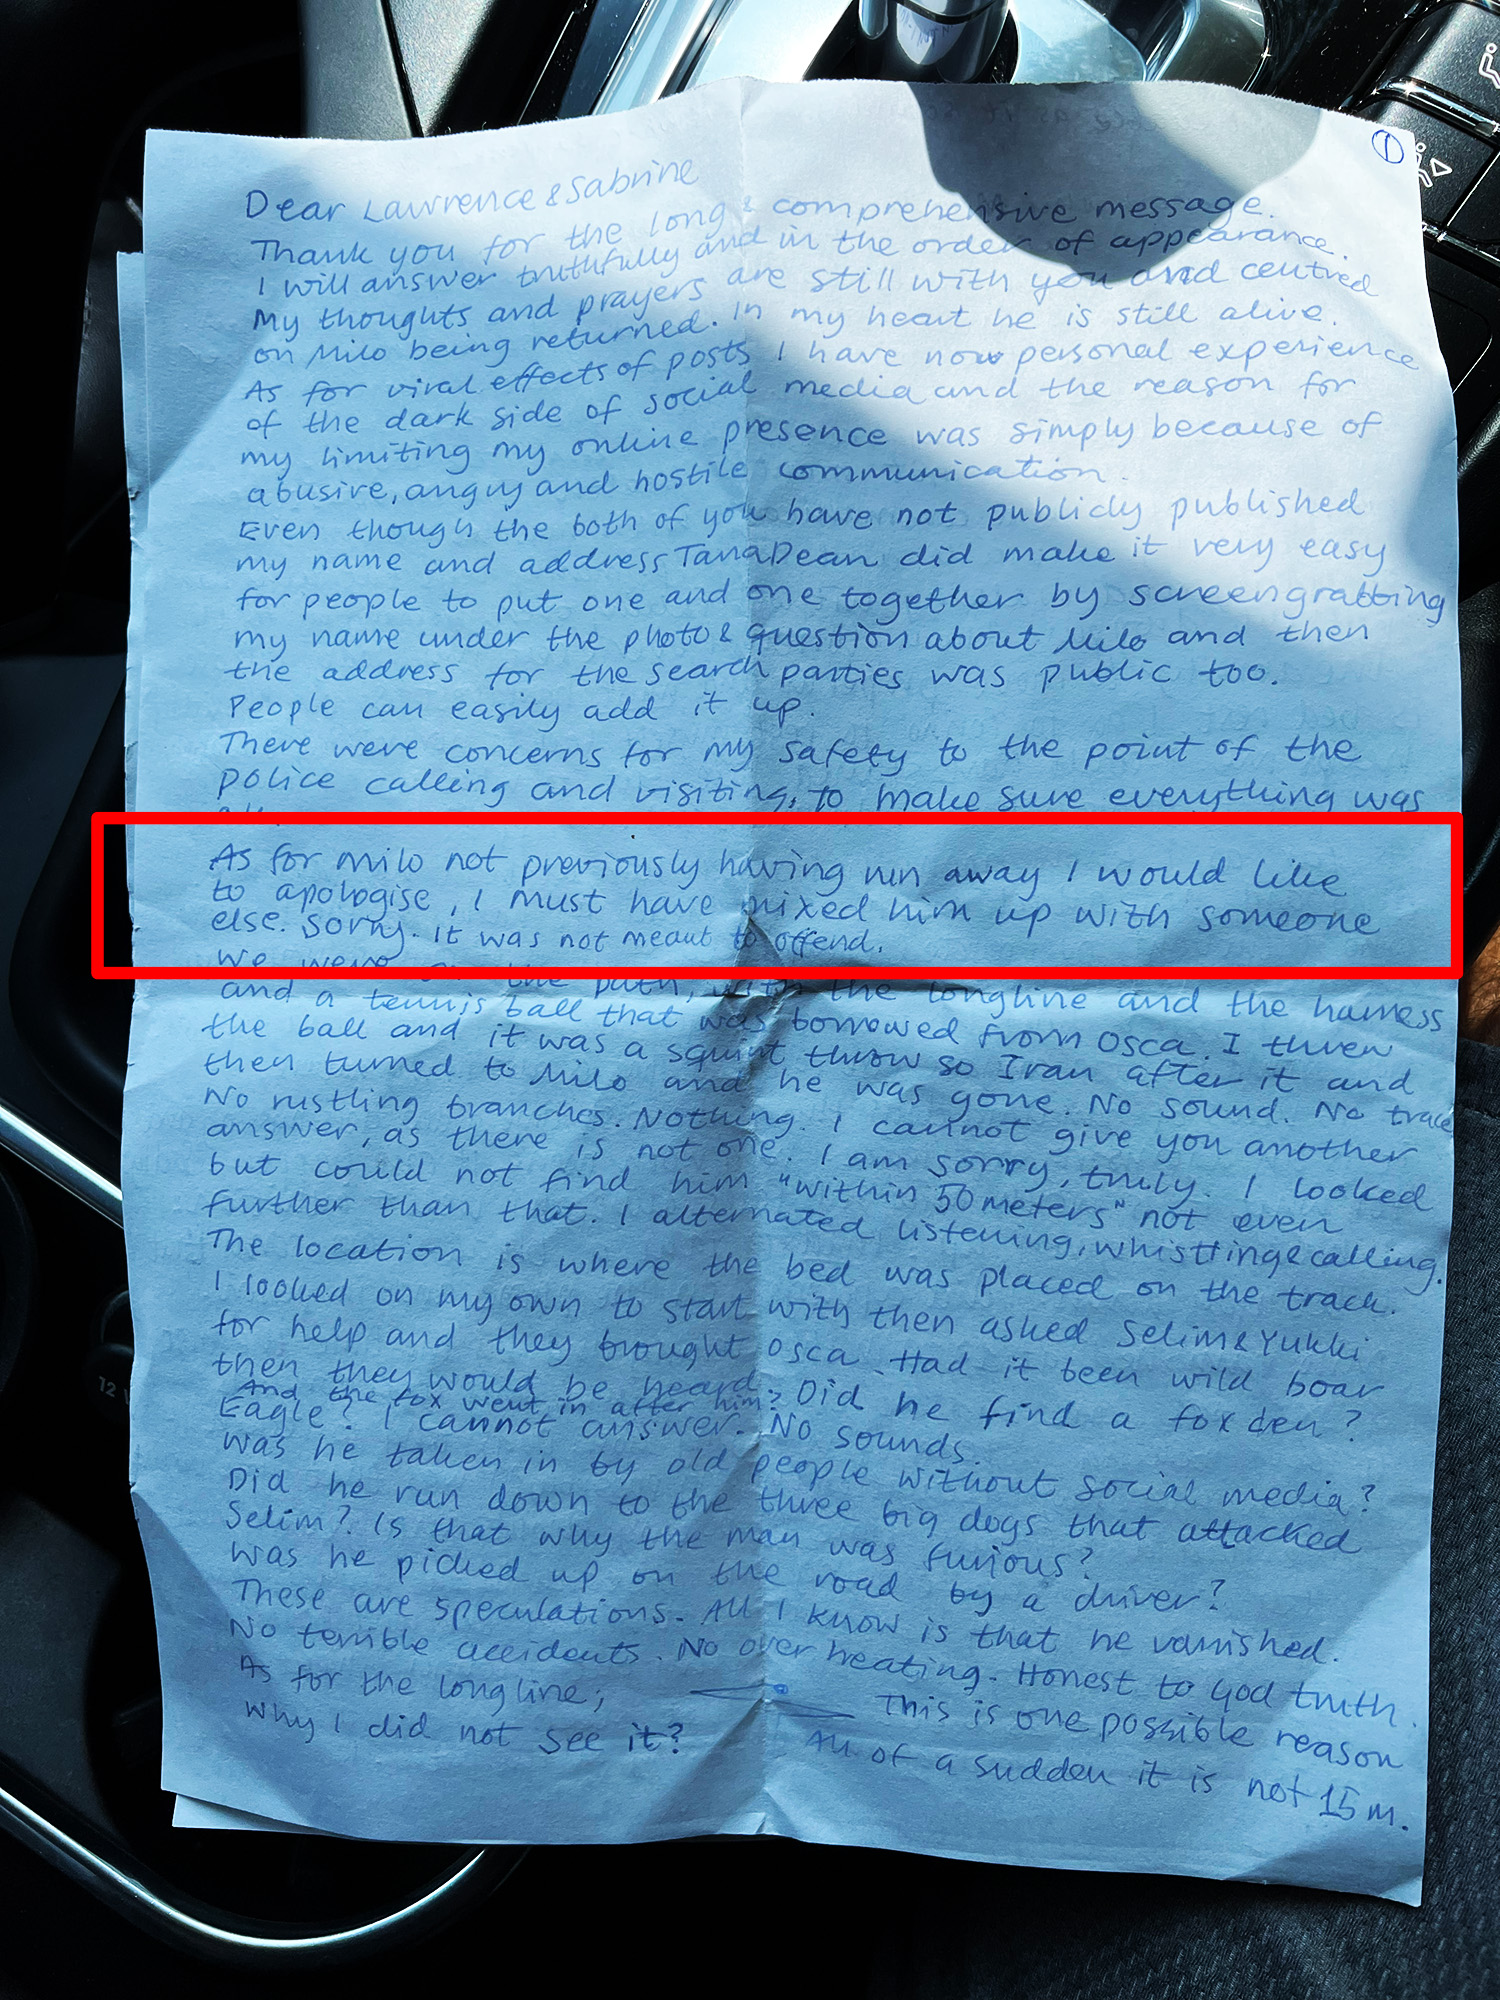 ①
Dear Lawrence & Sabrine
Thank you for the long & comprehensive message.
I will answer truthfully and in the order of appearance.
My thoughts and prayers are still with you and centred
on Milo being returned. In my heart he is still alive.
As for viral effects of posts I have now personal experience
of the dark side of social media and the reason for
my limiting my online presence was simply because of
abusive, angry and hostile communication.
Even though the both of you have not publicly published
my name and address Tana Dean did make it very easy
for people to put one and one together by screengrabbing
my name under the photo & question about Milo and then
the address for the search parties was public too.
People can easily add it up.
There were concerns for my safety to the point of the
police calling and visiting, to make sure everything was
As for Milo not previously having run away I would like
to apologise, I must have mixed him up with someone
else. Sorry. It was not meant to offend.
we were on the path, with the longline and the harness
and a tennis ball that was borrowed from Osca. I threw
the ball and it was a squint throw so I ran after it and
then turned to Milo and he was gone. No sound. No trace
No rustling branches. Nothing. I cannot give you another
answer, as there is not one. I am sorry, truly. I looked
but could not find him "within 50 meters" not even
further than that. I alternated listening, whistling & calling.
The location is where the bed was placed on the track.
I looked on my own to start with then asked Selim & Yukki
for help and they brought Osca. Had it been wild boar
then they would be heard. Did he find a fox den?
And the fox went in after him?
Eagle? I cannot answer. No sounds.
Was he taken in by old people without social media?
Did he run down to the three big dogs that attacked
Selim? Is that why the man was furious?
Was he picked up on the road by a driver?
These are speculations. All I know is that he vanished.
No terrible accidents. No over heating. Honest to God truth.
As for the longline;
This is one possible reason
Why I did not see it?
All of a sudden it is not 15 m.
12